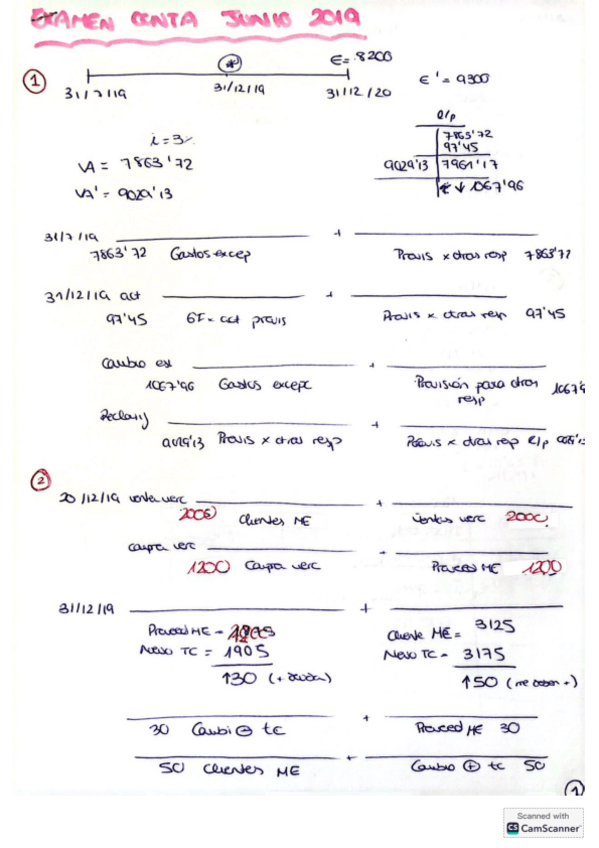 EXAMEN CONTA JUNIO 2019
① 31/7/19 31/12/19 31/12/20 E=8200 E'=9300
i=3%
VA= 7863'72
VA'= 9029'13
7863'72
97'45
9029'13 7961'17
1067'96
31/7/19 +
7863'72 Gastos excep Provis x otras resp 7863'72
31/12/19 act +
97'45 GF x act provis Provis x otras resp 97'45
Cambio est +
1067'96 Gastos except Provisión para otras resp 1067'9
+
9029'13 Provis x otras resp Provis x otras resp
②
20/12/19 venta merc +
2000 Clientes ME Ventas merc 2000
compra merc +
1200 Compra merc Proveed ME 1200
31/12/19 +
Proveed ME = Cliente ME = 3125
Nuevo TC = 1905 Nuevo TC = 3175
↑30 (+ deuda) ↑50 (me deben +)
+
30 Cambi ⊖ tc Proveed ME 30
+
50 Clientes ME Cambio ⊕ tc 50
①
Scanned with
CS CamScanner